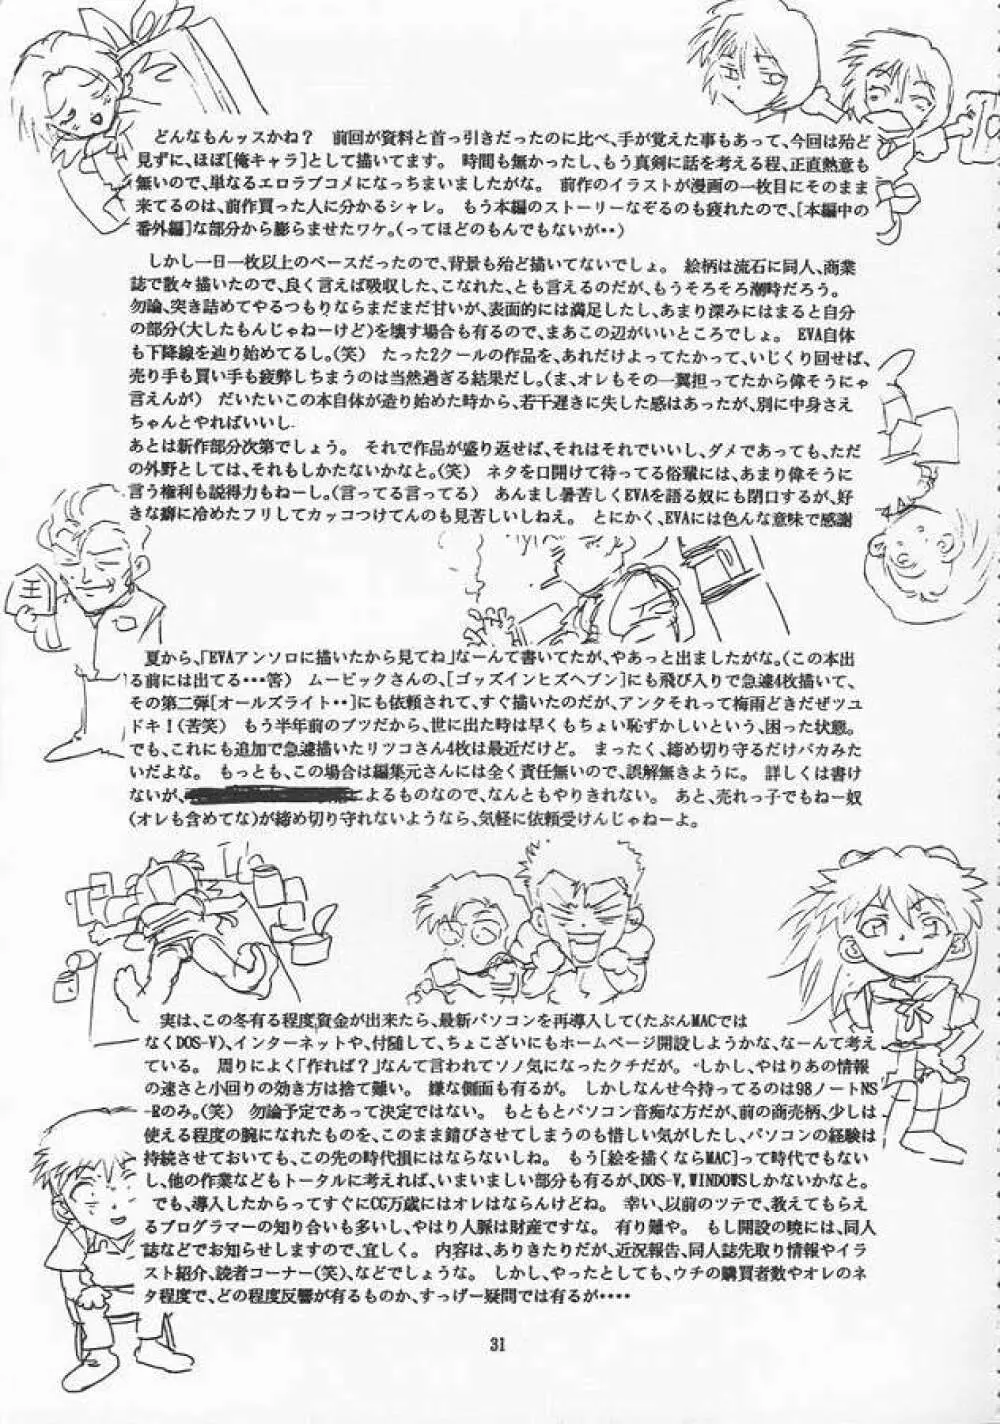 どんなもんッスかね？　前回が資料と首っ引きだったのに比べ、手が覚えた事もあって、今回は殆ど
見ずに、ほぼ[俺キャラ]として描いてます。　時間も無かったし、もう真剣に話を考える程、正直熱意も
無いので、単なるエロラブコメになっちまいましたがな。　前作のイラストが漫画の一枚目にそのまま
来てるのは、前作買った人に分かるシャレ。　もう本編のストーリーなぞるのも疲れたので、[本編中の
番外編]な部分から膨らませたワケ。(ってほどのもんでもないが・・)
しかし一日一枚以上のペースだったので、背景も殆ど描いてないでしょ。　絵柄は流石に同人、商業
誌で散々描いたので、良く言えば吸収した、こなれた、とも言えるのだが、もうそろそろ潮時だろう。
勿論、突き詰めてやるつもりならまだまだ甘いが、表面的には満足したし、あまり深みにはまると自分
の部分(大したもんじゃねーけど)を壊す場合も有るので、まあこの辺がいいところでしょ。　EVA自体
も下降線を辿り始めてるし。(笑)　たった2クールの作品を、あれだけよってたかって、いじくり回せば、
売り手も買い手も疲弊しちまうのは当然過ぎる結果だし。(ま、オレもその一翼担ってたから偉そうにゃ
言えんが)　だいたいこの本自体が造り始めた時から、若干遅きに失した感はあったが、別に中身さえ
ちゃんとやればいいし.
あとは新作部分次第でしょう。　それで作品が盛り返せば、それはそれでいいし、ダメであっても、ただ
の外野としては、それもしかたないかなと。(笑)　ネタを口開けて待ってる俗輩には、あまり偉そうに
言う権利も説得力もねーし。(言ってる言ってる)　あんまし暑苦しくEVAを語る奴にも閉口するが、好
きな癖に冷めたフリしてカッコつけてんのも見苦しいしねえ。　とにかく、EVAには色んな意味で感謝
王
夏から、「EVAアンソロに描いたから見てね」なーんて書いてたが、やあっと出ましたがな。(この本出
る前には出てる・・・筈)　ムービックさんの、[ゴッズインヒズヘブン]にも飛び入りで急遽4枚描いて、
その第二弾[オールズライト・・]にも依頼されて、すぐ描いたのだが、アンタそれって梅雨どきだぜツユ
ドキ！(苦笑)　もう半年前のブツだから、世に出た時は早くもちょい恥ずかしいという、困った状態。
でも、これにも追加で急遽描いたリツコさん4枚は最近だけど。　まったく、締め切り守るだけバカみた
いだよな。　もっとも、この場合は編集元さんには全く責任無いので、誤解無きように。　詳しくは書け
ないが、によるものなので、なんともやりきれない。　あと、売れっ子でもねー奴
(オレも含めてな)が締め切り守れないようなら、気軽に依頼受けんじゃねーよ。
実は、この冬有る程度資金が出来たら、最新パソコンを再導入して(たぶんMACでは
なくDOS-V)、インターネットや、付随して、ちょこざいにもホームページ開設しようかな、なーんて考え
ている。　周りによく「作れば？」なんて言われてソノ気になったクチだが。　しかし、やはりあの情報
の速さと小回りの効き方は捨て難い。　嫌な側面も有るが。　しかしなんせ今持ってるのは98ノートNS
-Rのみ。(笑)　勿論予定であって決定ではない。　もともとパソコン音痴な方だが、前の商売柄、少しは
使える程度の腕になれたものを、このまま錆びさせてしまうのも惜しい気がしたし、パソコンの経験は
持続させておいても、この先の時代損にはならないしね。　もう[絵を描くならMAC]って時代でもない
し、他の作業などもトータルに考えれば、いまいましい部分も有るが、DOS-V,WINDOWSしかないかなと。
でも、導入したからってすぐにCG万歳にはオレはならんけどね。　幸い、以前のツテで、教えてもらえ
るプログラマーの知り合いも多いし、やはり人脈は財産ですな。　有り難や。　もし開設の暁には、同人
誌などでお知らせしますので、宜しく。　内容は、ありきたりだが、近況報告、同人誌先取り情報やイラ
スト紹介、読者コーナー(笑)、などでしょうな。　しかし、やったとしても、ウチの購買者数やオレのネ
タ程度で、どの程度反響が有るものか、すっげー疑問では有るが・・・・
31